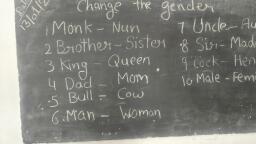 Change the gender
1 Monk - Nun
2 Brother - Sister
3 King - Queen
4 Dad - Mom
5 Bull - Cow
6. Man - Woman
7 Uncle - Au
8 Sir - Mad
9 Cock - Hen
10 Male - Fem